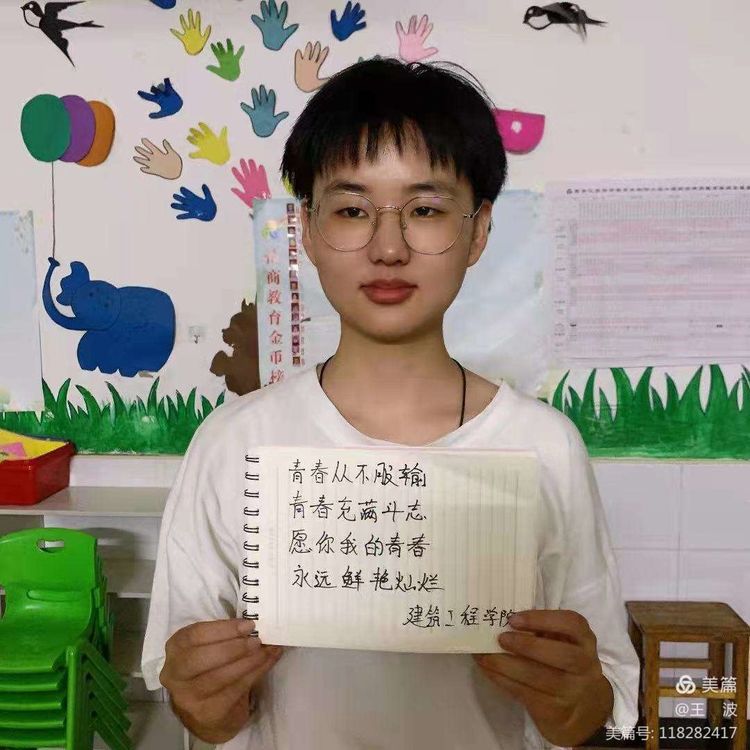 德商教育金币榜
青春从不服输
青春充满斗志
愿你我的青春
永远鲜艳灿烂
建筑工程学院
美篇
@王 波
美篇号: 118282417